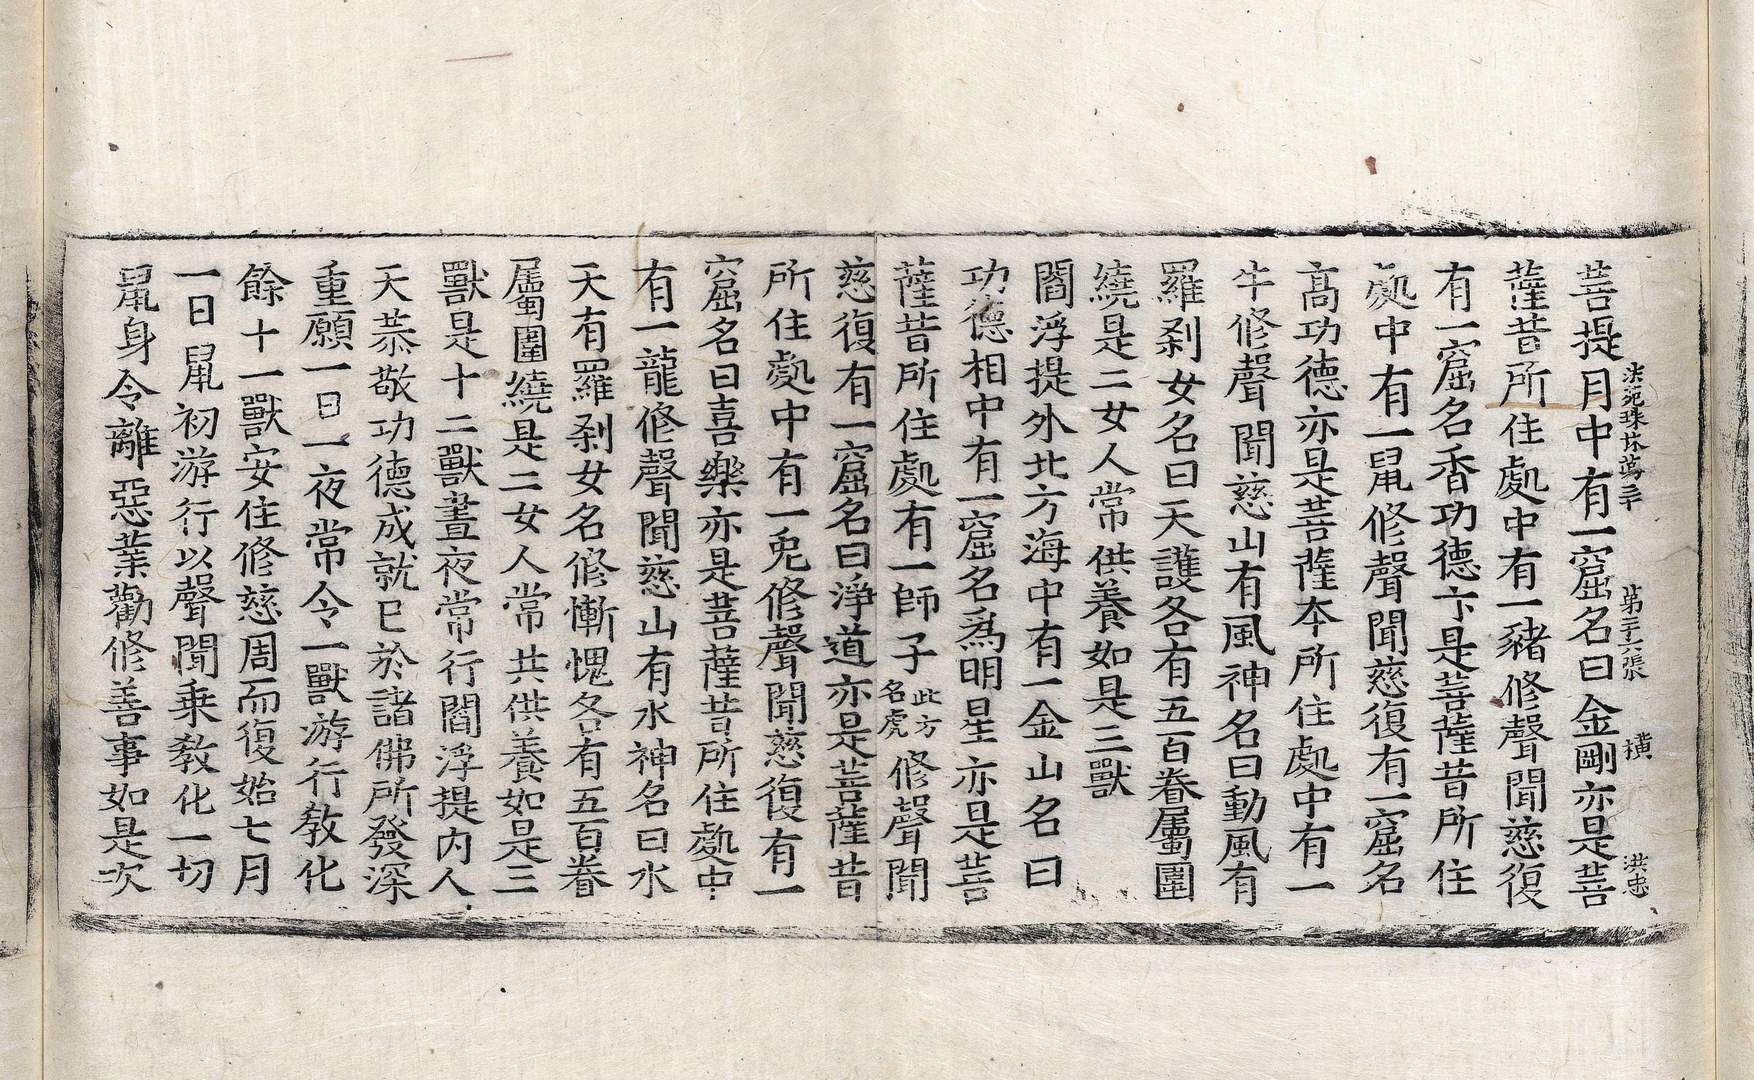 菩提月中有一窟名曰金剛亦是菩
法苑珠林萬三　第三十六張　横　洪忠
薩昔所住處中有一豬修聲聞慈復
有一窟名香功德亦是菩薩昔所住
處中有一鼠修聲聞慈復有一窟名
高功德亦是菩薩本所住處中有一
牛修聲聞慈山有風神名曰動風有
羅刹女名曰天護各有五百眷屬圍
繞是二女人常供養如是三獸
閻浮提外北方海中有一金山名曰
功德相中有一窟名爲明星亦是菩
薩昔所住處有一師子此方名虎修聲聞
慈復有一窟名曰淨道亦是菩薩昔
所住處中有一兎修聲聞慈復有一
窟名曰喜樂亦是菩薩昔所住處中
有一龍修聲聞慈山有水神名曰水
天有羅刹女名修慚愧各有五百眷
屬圍繞是二女人常共供養如是三
獸是十二獸晝夜常行閻浮提內人
天恭敬功德成就已於諸佛所發深
重願一日一夜常令一獸游行教化
餘十一獸安住修慈周而復始七月
一日鼠初游行以聲聞乘教化一切
鼠身令離惡業勸修善事如是次